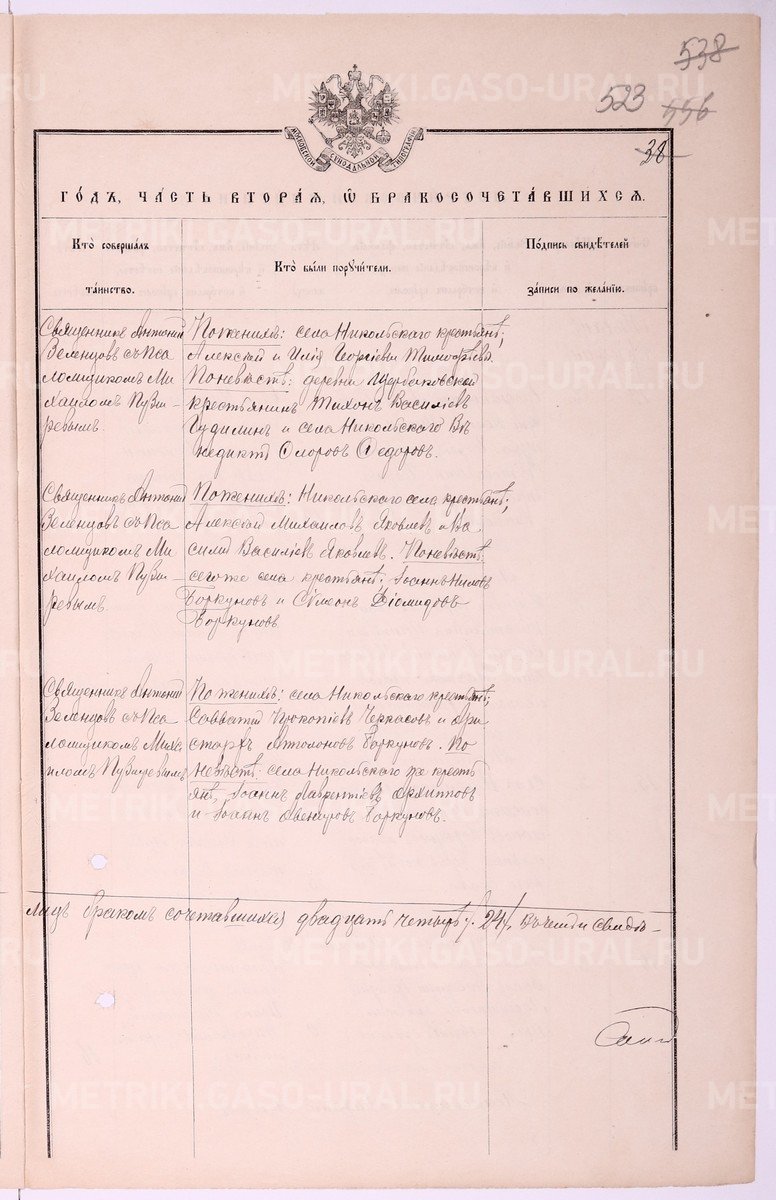 538
523 556
38
МОСКОВСКОЙ СѴНОДАЛЬНОЙ ТИПОГРАФІИ
ГО́ДЪ, ЧА́СТЬ ВТОРА́Я, Ѡ БРАКОСОЧЕТА́ВШИХСЯ.
Кто̀ соверша́лъ
та́инство.
Кто̀ бы́ли пор​учи́тели.
По́дпись свидѣ́телей
за́писи по жела́нію.
Священникъ Антоній
Зеленцовъ съ Пса
ломщикомъ Ми
хаиломъ Пузы-
ревымъ.
По женихѣ: села Никольскаго крестьянѣ;
Алексій и Илія Георгіевы Тимофѣевы.
По невѣстѣ: деревни Щербаковской
крестьянинъ Тихонъ Василіевъ
Гудилинъ и села Никольскаго Ве
недиктъ Флоровъ Ѳедоровъ.
Священникъ Антоній
Зеленцовъ съ Пса
ломщикомъ Ми
хаиломъ Пузы-
ревымъ.
По женихѣ: Никольскаго села крестьянѣ;
Алексій Михаиловъ Яковлев и Ва
силій Василіевъ Яковлев. По невѣстѣ:
сего же села крестьянѣ; Іоаннъ Ниловъ
Боркуновъ и Сѵмеонъ Діомидовъ
Боркуновъ
Священникъ Антоній
Зеленцовъ съ Пса
ломщикомъ Миха
иломъ Пузыревымъ
По женихѣ: села Никольскаго крестьянѣ;
Савватій Прокопіевъ Черкасовъ и Ари
стархъ Автономовъ Боркуновъ. По
невѣстѣ: села Никольскаго же кресть
янѣ, Іоаннъ Лаврентіевъ Архиповъ
и Іоаннъ Боркуновъ.
лицъ бракомъ сочетавшихся двадцать четыре /24/, въ чемъ и свидѣ-
METRIKI.GASO-URAL.RU